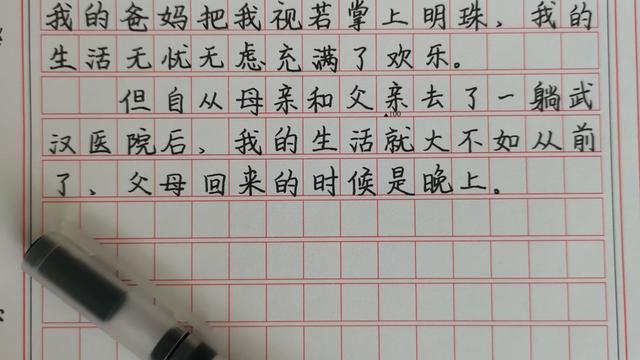 我的爸妈把我视若掌上明珠，我的
生活无忧无虑充满了欢乐。
但自从母亲和父亲去了一躺武
▲100
汉医院后，我的生活就大不如从前
了，父母回来的时候是晚上。